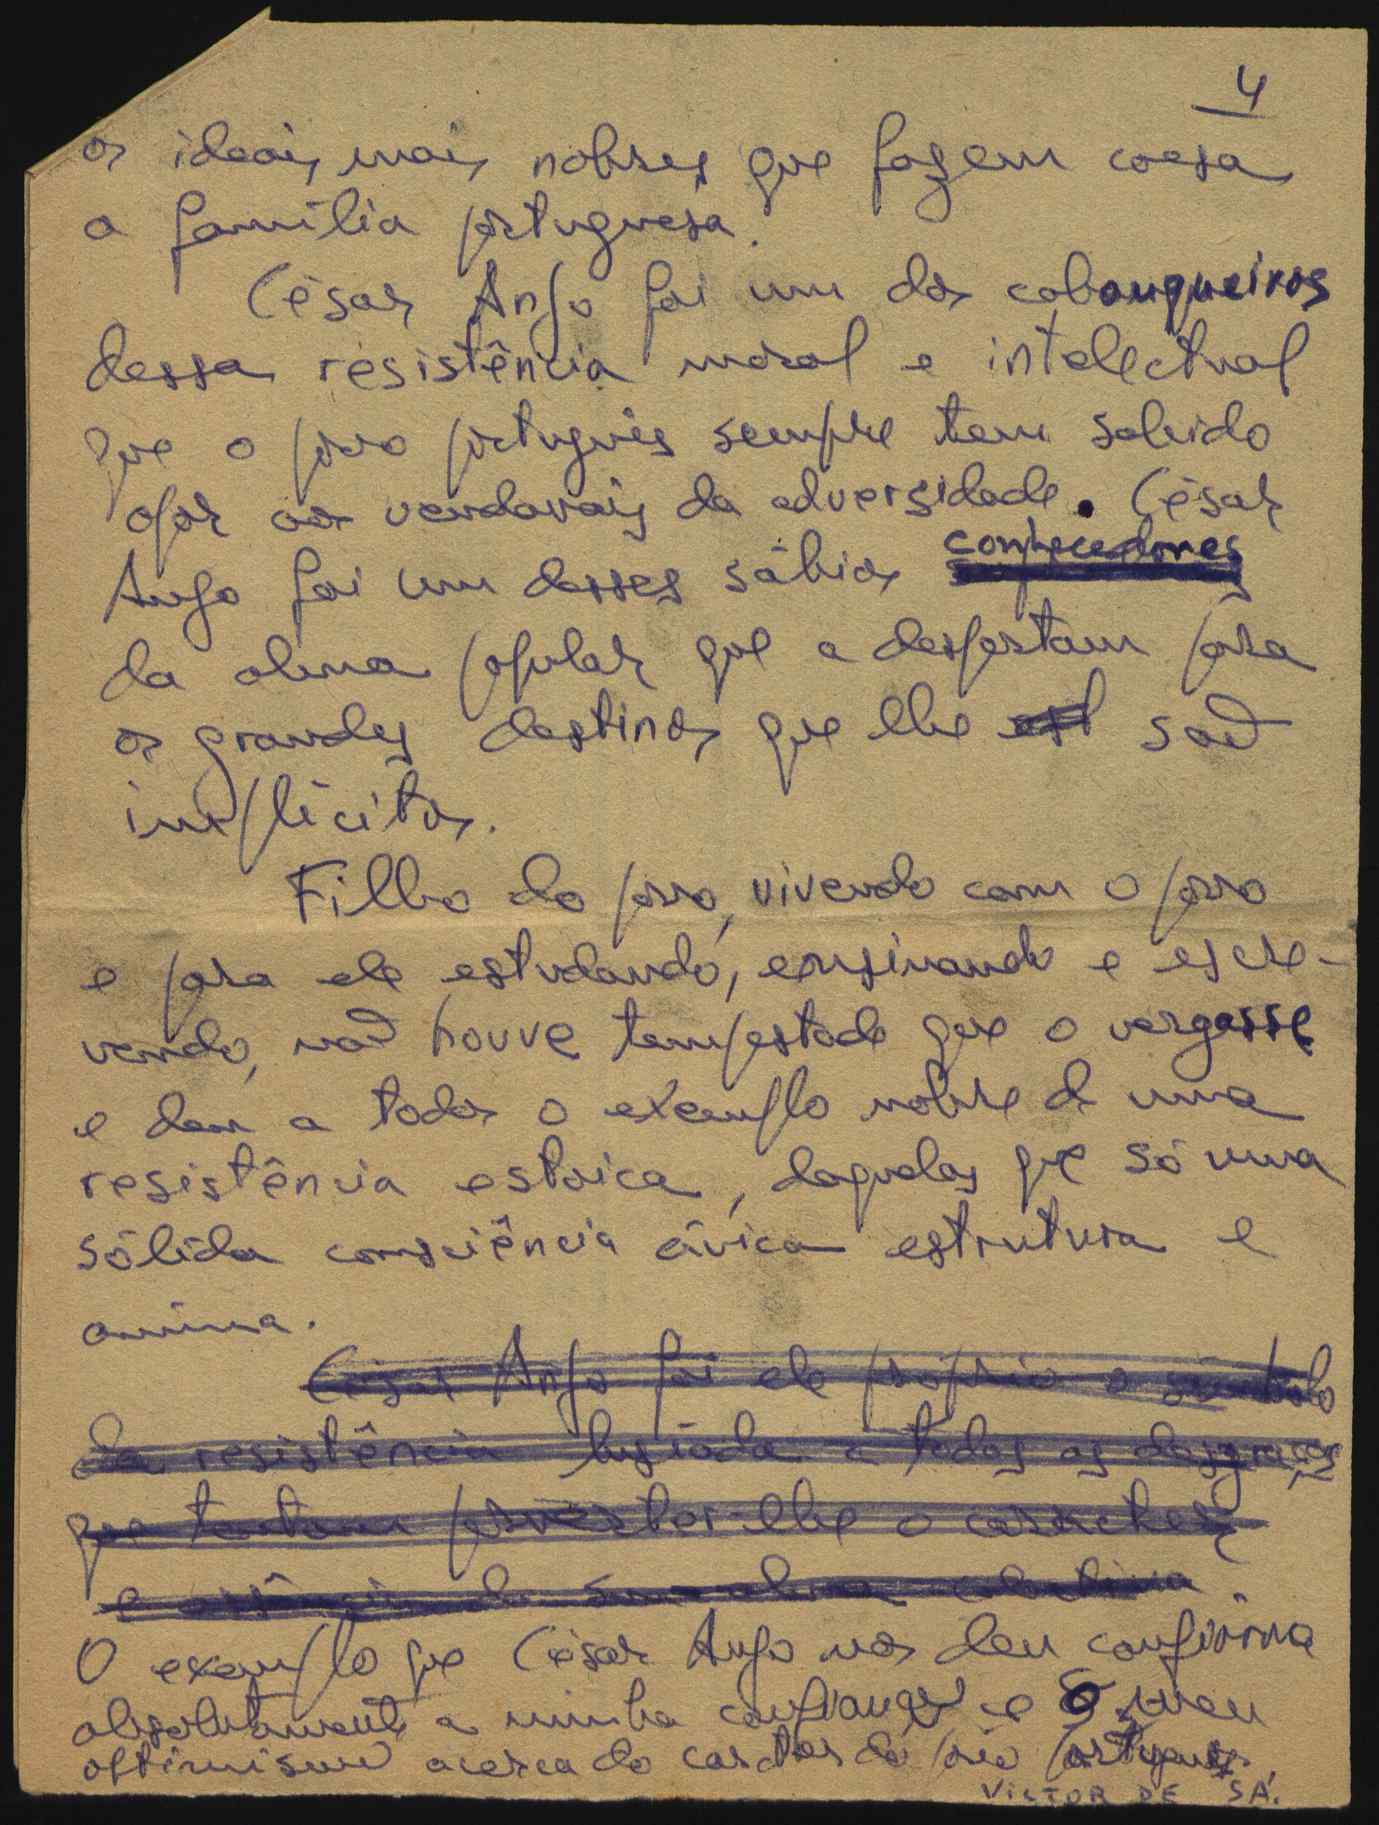 4
os ideais mais nobres que fazem coesa
a família portuguesa.
César Anjo foi um dos cabouqueiros
dessa resistência moral e intelectual
que o povo português sempre tem sabido
opôr aos vendavais da adversidade. César
conhecedores
Anjo foi um desses sábios
da alma popular que a despertam para
os grandes destinos que lhe são
implícitos.
Filho do povo, vivendo com o povo
e para ele estudando, ensinando e escre-
vendo, não houve tempestade que o vergasse
e deu a todos o exemplo nobre de uma
resistência estoica, daquelas que só uma
sólida consciência cívica estrutura e
anima.
César Anjo foi ele próprio o símbolo
da resistência lusíada a todas as desgraças
que tentam perverter-lhe o carácter
e a essência da sua alma colectiva.
O exemplo que César Anjo nos deu confirma
absolutamente a minha confiança e o meu
optimismo acerca do carácter do povo português.
VICTOR DE SÁ.